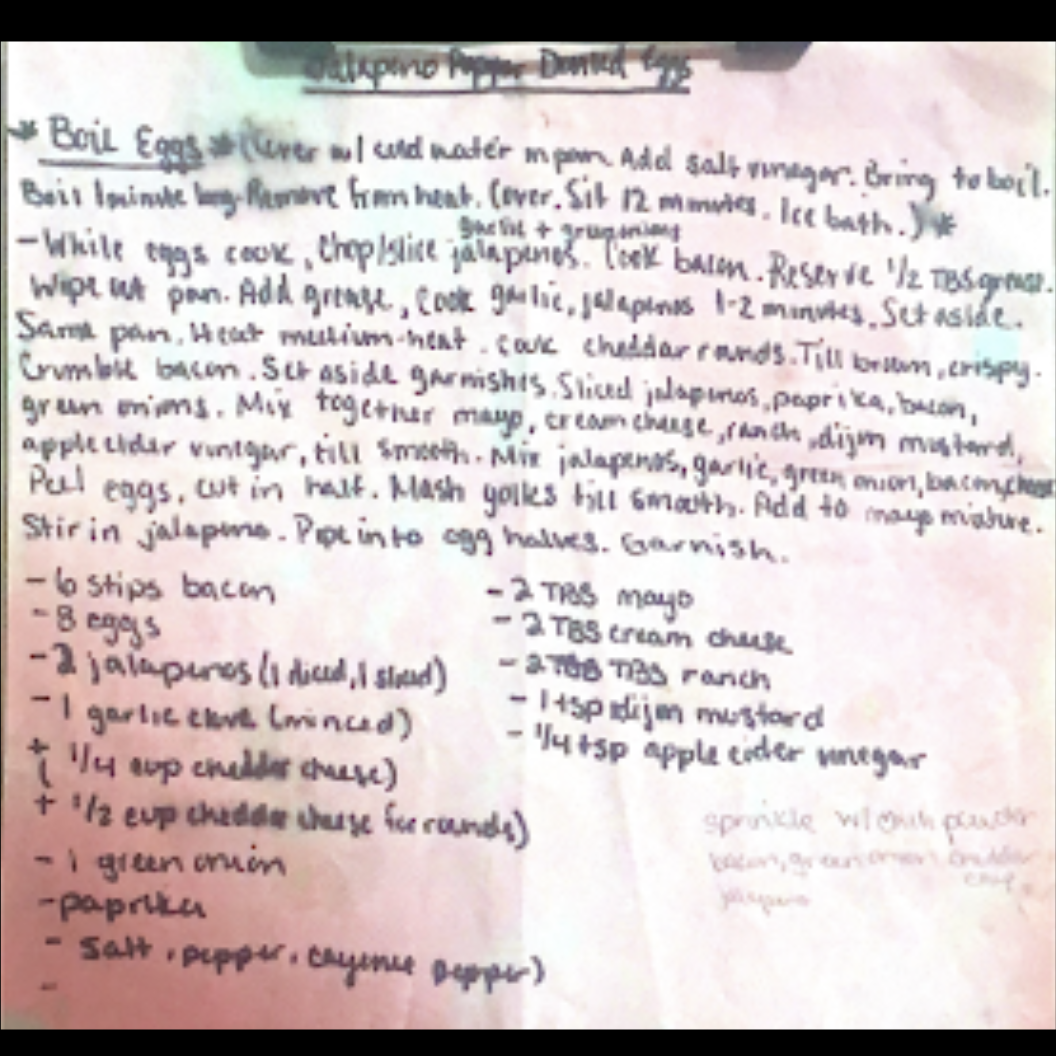 Jalapeno Popper Deviled Eggs
* Boil Eggs * (Cover w/ cold water in pan. Add salt vinegar. Bring to boil.
Boil 1 minute long. Remove from heat. Cover. Sit 12 minutes. Ice bath.) *
garlic + green onions
- While eggs cook, Chop/slice jalapenos. Cook bacon. Reserve 1/2 TBS grease.
Wipe out pan. Add grease, cook garlic, jalapenos 1-2 minutes. Set aside.
Same pan. Heat medium-heat. Cook cheddar rounds. Till brown, crispy.
Crumble bacon. Set aside garnishes. Sliced jalapenos, paprika, bacon,
green onions. Mix together mayo, cream cheese, ranch, dijon mustard,
apple cider vinegar, till smooth. Mix jalapenos, garlic, green onion, bacon, cheese
Peel eggs, cut in half. Mash yolks till smooth. Add to mayo mixture.
Stir in jalapeno. Pipe into egg halves. Garnish.
- 6 stips bacon
- 8 eggs
- 2 jalapenos (1 diced, 1 sliced)
- 1 garlic clove (minced)
+ ( 1/4 cup cheddar cheese)
+ 1/2 cup cheddar cheese for rounds)
- 1 green onion
- paprika
- salt, pepper, cayenne pepper)
-
- 2 TBS mayo
- 2 TBS cream cheese
- 2 TBS ranch
- 1 tsp dijon mustard
- 1/4 tsp apple cider vinegar
sprinkle w/ chili powder
bacon, green onion cheddar